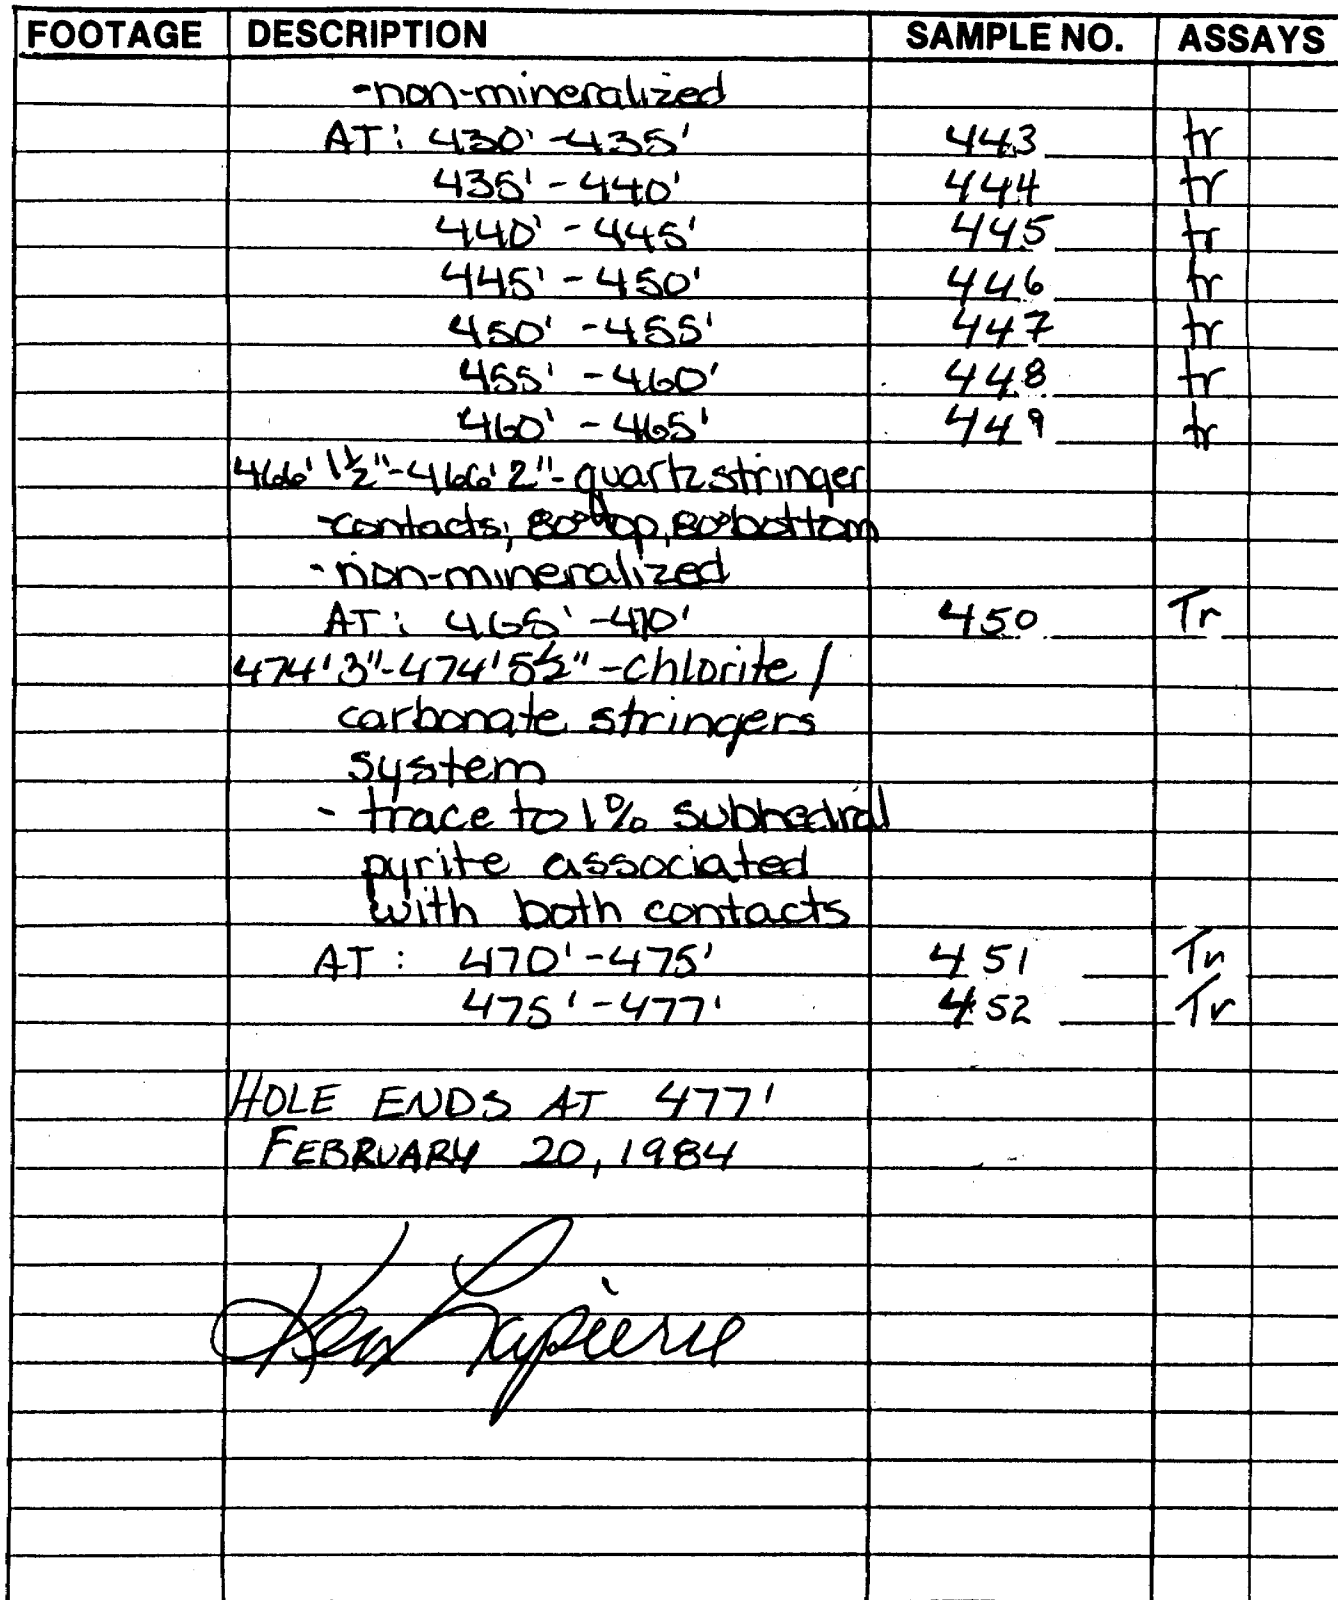 FOOTAGE DESCRIPTION SAMPLE NO. ASSAYS
-non-mineralized
AT: 430'-435' 443 tr
435'-440' 444 tr
440'-445' 445 tr
445'-450' 446 tr
450'-455' 447 tr
455'-460' 448 tr
460'-465' 449 tr
466' 1½"-466' 2"-quartz stringer
-contacts; 80° top, 80° bottom
-non-mineralized
AT: 465'-470' 450 Tr
474'3"-474'5½"-chlorite/
carbonate stringers
system
- trace to 1% subhedral
pyrite associated
with both contacts
AT: 470'-475' 451 Tr
475'-477' 452 Tr
HOLE ENDS AT 477'
FEBRUARY 20, 1984
Ken Lapierre